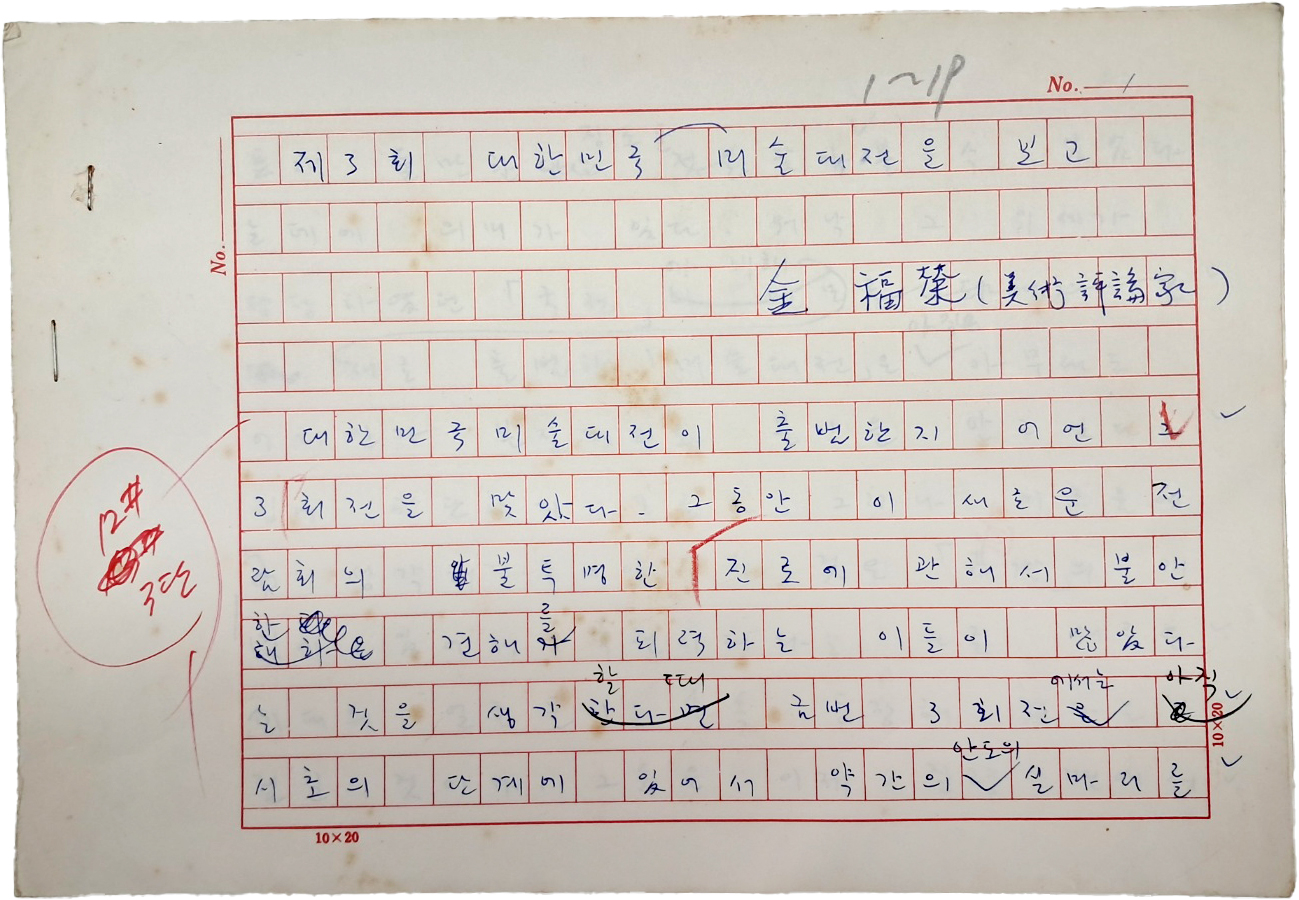 1~19
No. 1
제3회 대한민국 미술대전을 보고
No.
金 福榮(美術評論家)
대한민국미술대전이 출범한지 어언
3회전을 맞았다. 그동안 이 새로운 전
12#
3단
람회의 불투명한 진로에 관해서 불안
한 견해를 피력하는 이들이 많았다
할 때 에서는 아직
는 것을 생각한다면 금번 3회전
안도의
시초의 단계에 있어서 약간의 실마리를
10×20
10×20